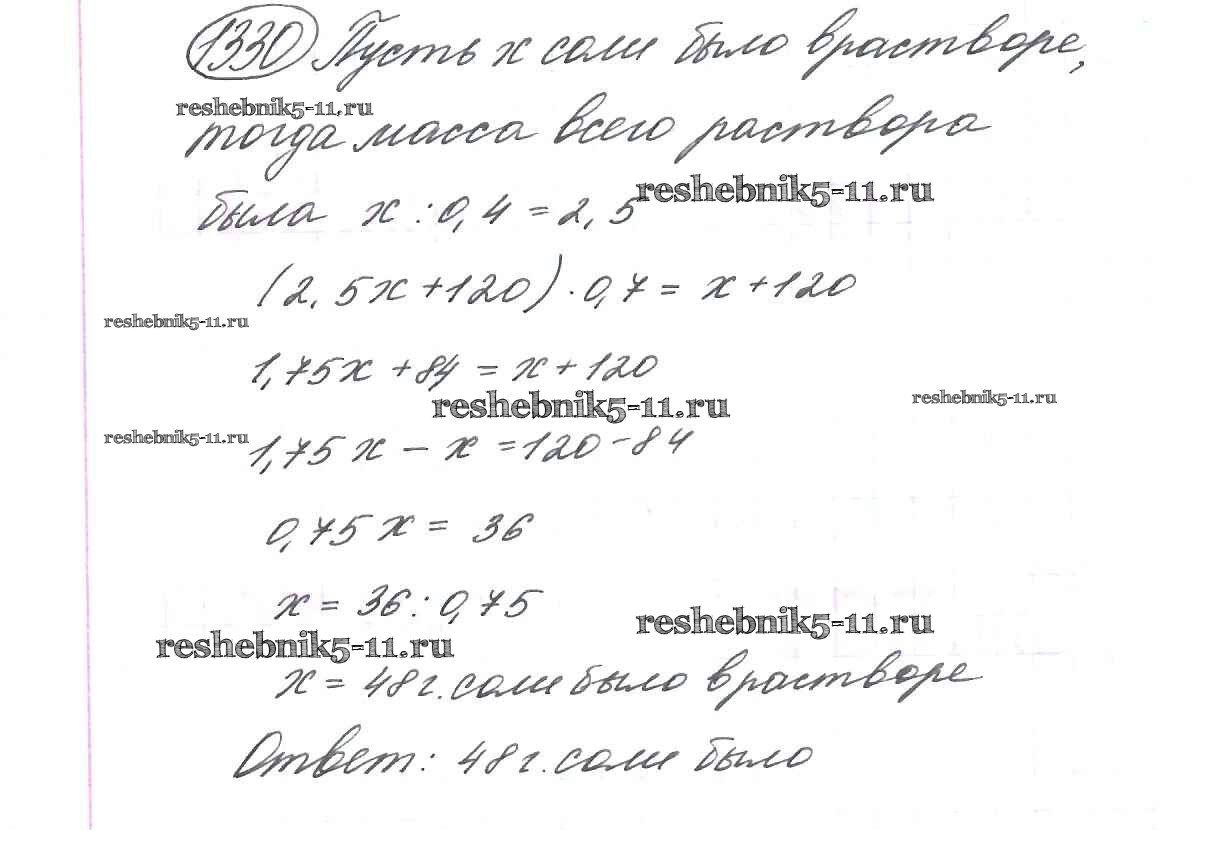 1330 Пусть х соли было в растворе,
reshebnik5-11.ru
тогда масса всего раствора
reshebnik5-11.ru
была х : 0,4 = 2,5
(2,5х + 120) · 0,7 = х + 120
reshebnik5-11.ru
1,75х + 84 = х + 120
reshebnik5-11.ru
reshebnik5-11.ru
reshebnik5-11.ru
1,75х - х = 120 - 84
0,75х = 36
х = 36 : 0,75
reshebnik5-11.ru
reshebnik5-11.ru
х = 48 г. соли было в растворе
Ответ: 48 г. соли было